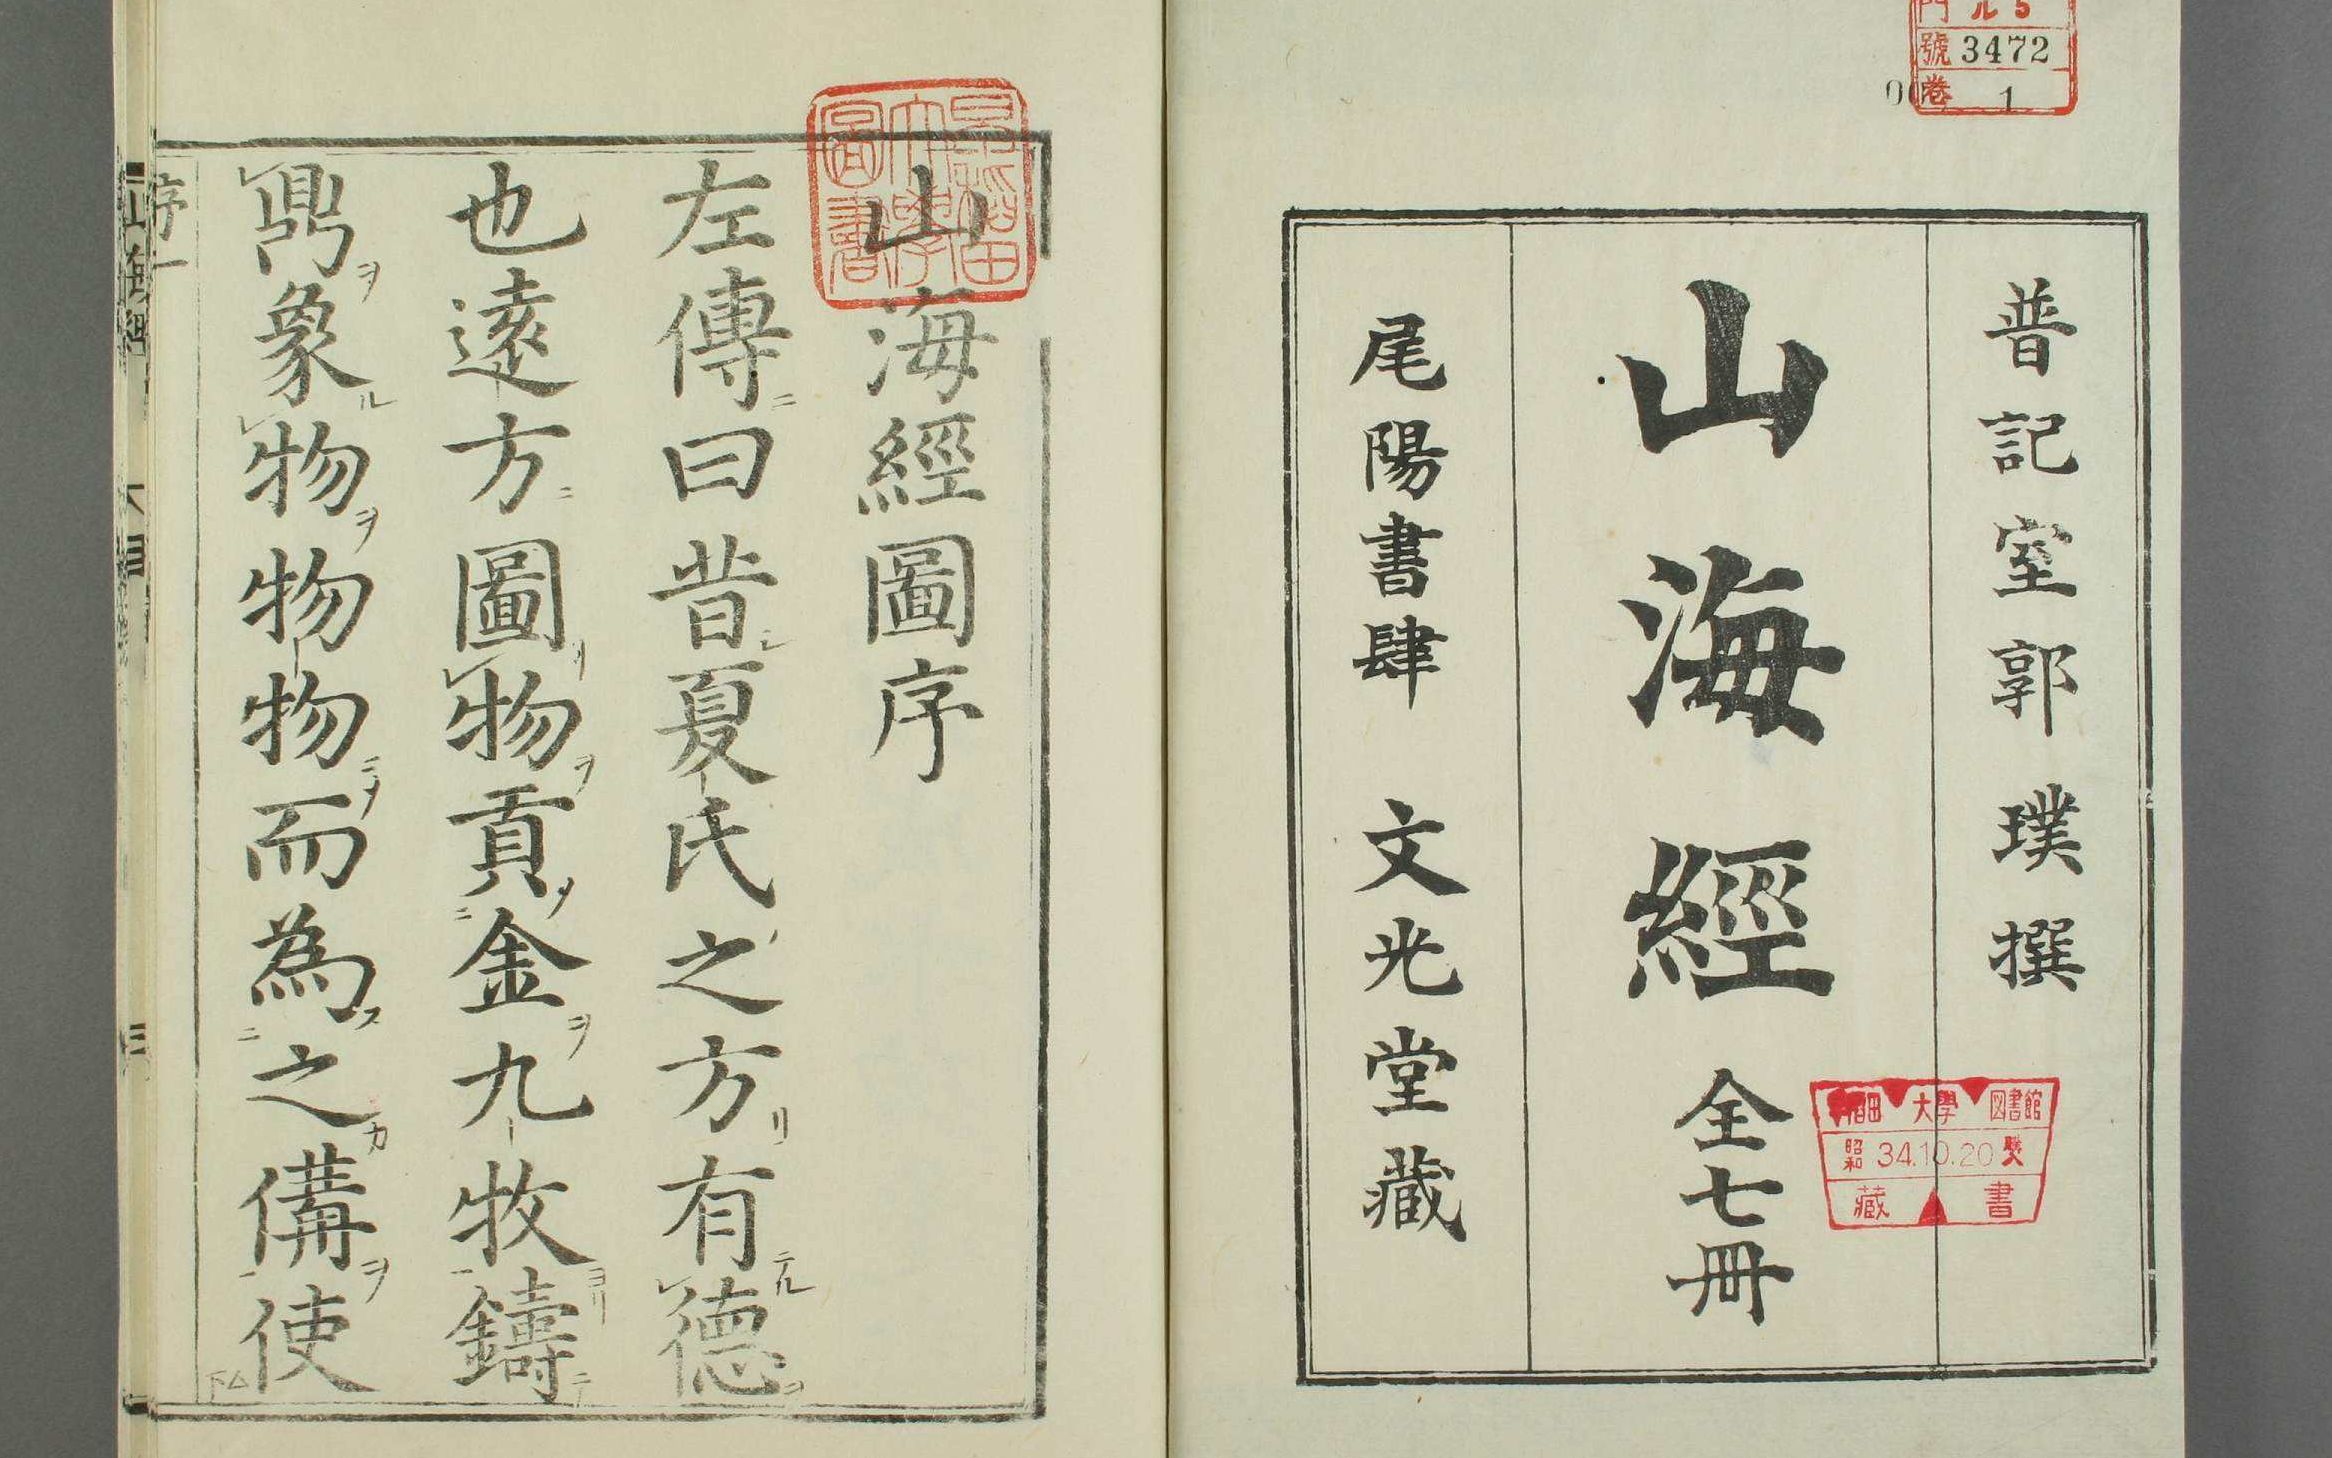 門 ル5
號 3472
卷 1
普記室郭璞撰
山海經 全七冊
尾陽書肆 文光堂藏
大學 図書館
昭和 34.10.20
藏書
早稲田大學圖書
山海經圖序
左傳ニ曰昔シ夏氏之ノ方リ有テル德ヲ
也遠方ニ圖リ物ヲ貢ノ金ヲ九牧ヨリ鑄テ
鼎ヲ象ル物ヲ物物ニメ而為ス之カ備ヲ使
序一
山海經